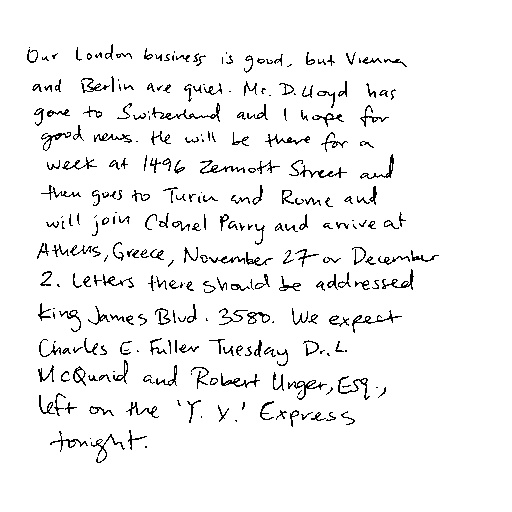 Our London business is good, but Vienna
and Berlin are quiet. Mr. D. Lloyd has
gone to Switzerland and I hope for
good news. He will be there for a
week at 1496 Zermott Street and
then goes to Turin and Rome and
will join Colonel Parry and arrive at
Athens, Greece, November 27 or December
2. Letters there should be addressed
King James Blvd. 3580. We expect
Charles E. Fuller Tuesday Dr. L.
McQuaid and Robert Unger, Esq.,
left on the 'Y. X.' Express
tonight.